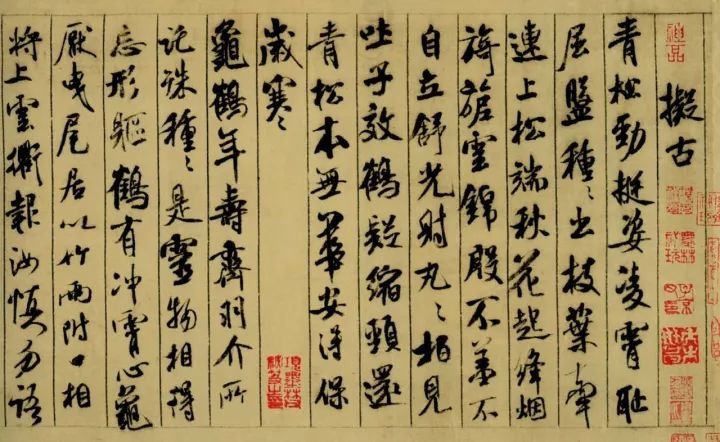 神品
擬古
青松勁挺姿凌霄耻
屈盤種々出枝葉牽
連上松端秋花起絳烟
旖旎雲錦殷不羞不
自立舒光射丸々柏見
吐子效鶴疑縮頸還
青松本無華安得保
歲寒
龜鶴年壽齊羽介所
託殊種々是靈物相得
忘形軀鶴有冲霄心龜
厭曳尾居以竹兩附口相
將上雲衢報汝慎勿語